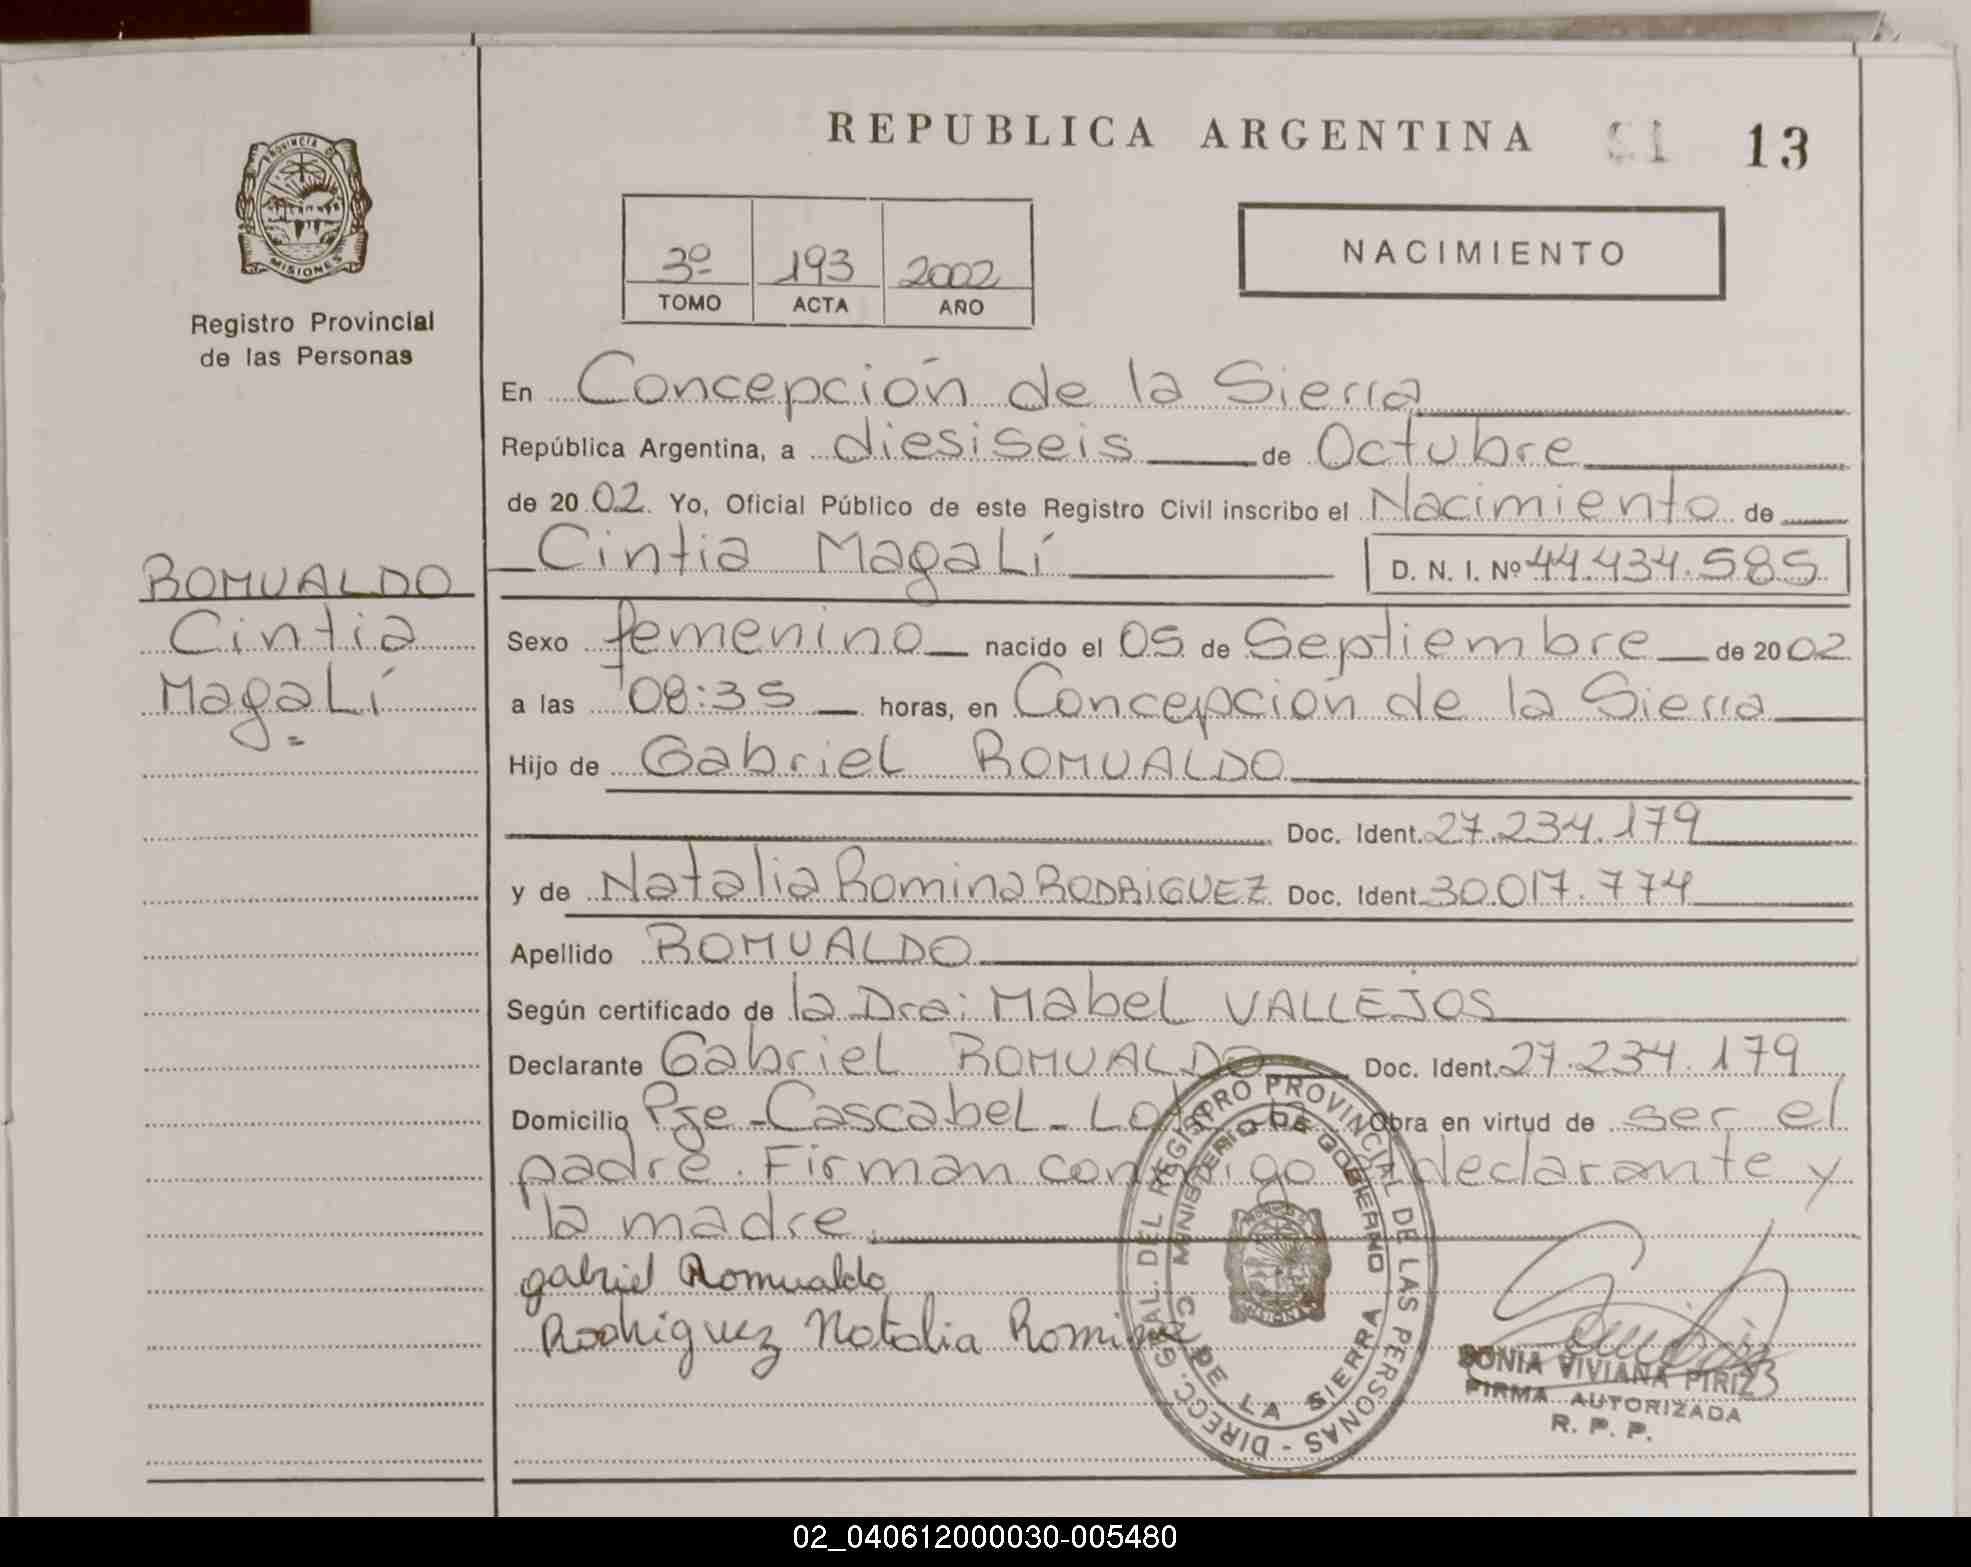 REPUBLICA ARGENTINA 13
PROVINCIA DE
MISIONES
Registro Provincial
de las Personas
3º 193 2002
TOMO ACTA AÑO
NACIMIENTO
En Concepción de la Sierra
República Argentina, a diesiseis de Octubre
de 2002 Yo, Oficial Público de este Registro Civil inscribo el Nacimiento de
Cintia Magalí D. N. I. Nº 44.434.585
ROMUALDO
Cintia
Magalí
Sexo femenino nacido el 05 de Septiembre de 2002
a las 08:35 horas, en Concepción de la Sierra
Hijo de Gabriel ROMUALDO
Doc. Ident. 27.234.179
y de Natalia Romina RODRIGUEZ Doc. Ident. 30.017.774
Apellido ROMUALDO
Según certificado de la Dra: Mabel VALLEJOS
Declarante Gabriel ROMUALDO Doc. Ident. 27.234.179
Domicilio Pje-Cascabel- Obra en virtud de ser el
padre. Firman conmigo declarante y
la madre.
gabriel Romualdo
Rodriguez Natalia Romina
DIRECC. GRAL. DEL REGISTRO PROVINCIAL DE LAS PERSONAS -
MINISTERIO DE GOBIERNO
C. DE LA SIERRA
SONIA VIVIANA PIRIZ
FIRMA AUTORIZADA
R. P. P.
02_040612000030-005480